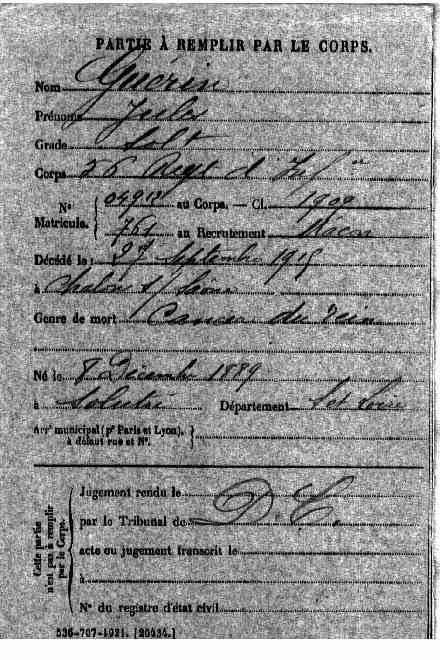 PARTIE À REMPLIR PAR LE CORPS.
Nom Guérin
Prénoms Jules
Grade Solt
Corps 56 Regt d'Infie
No Matricule. { 04912 au Corps. — Cl. 1909
764 au Recrutement Macon
Décédé le : 27 Septembre 1915
à Chalon s/ Saone
Genre de mort Cancer du rein
Né le 8 Décembre 1889
à Solutré Département Set Loire
Arrt municipal (pr Paris et Lyon), à défaut rue et No. }
Cette partie n'est pas à remplir par le Corps.
Jugement rendu le
par le Tribunal de D. C.
acte ou jugement transcrit le
à
No du registre d'état civil
536-707-1921. [26434.]